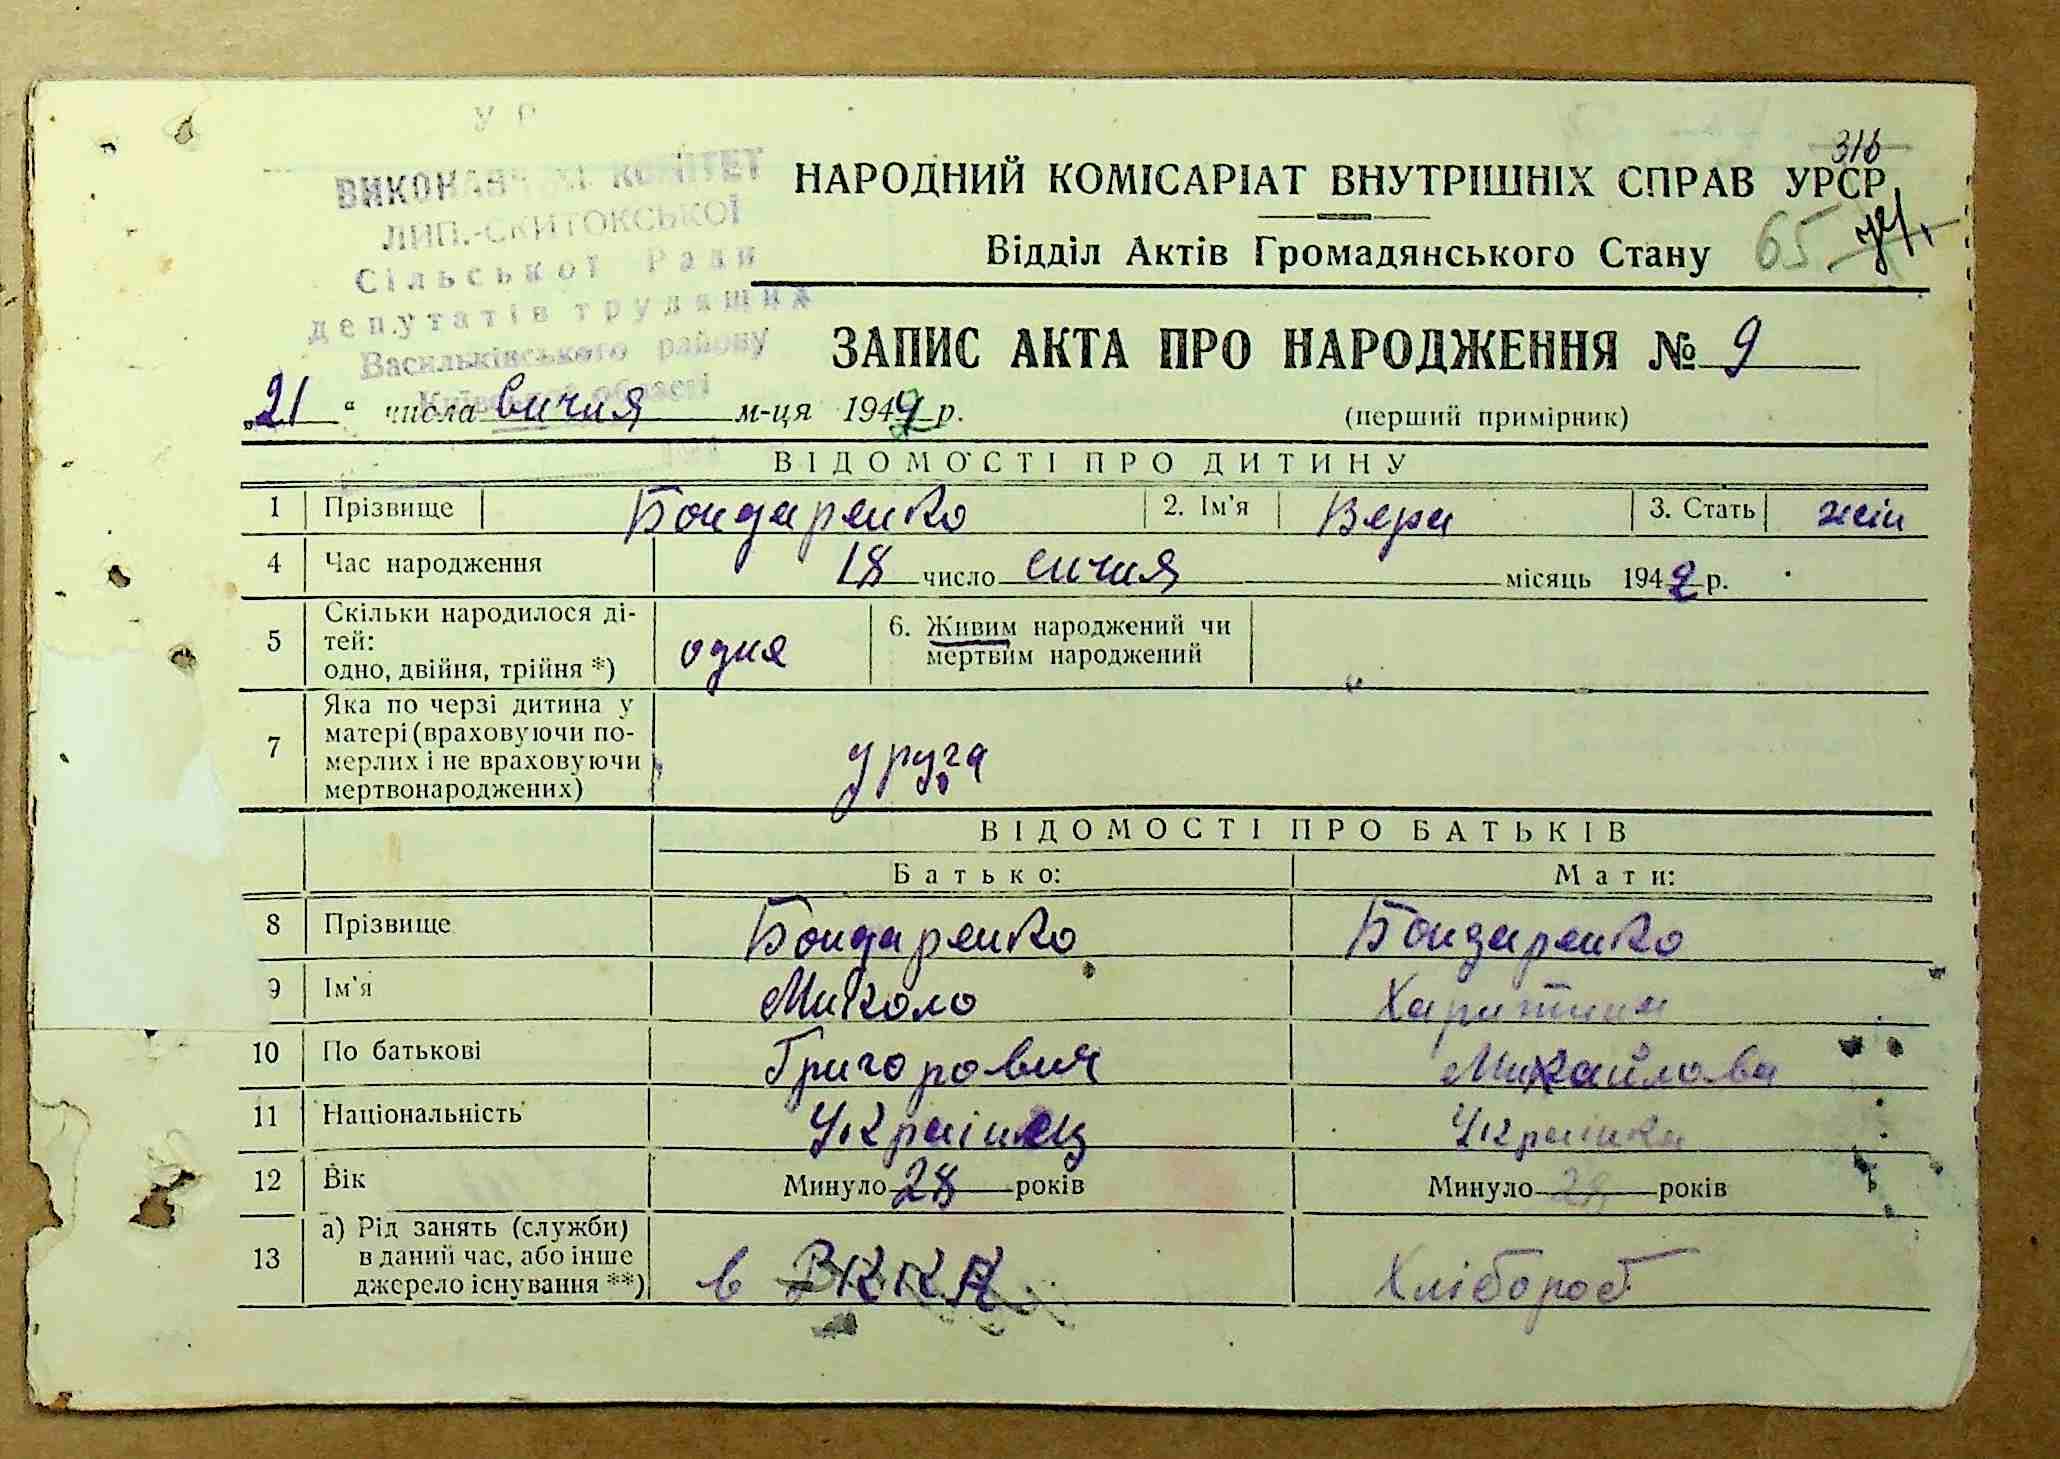 У Р
ВИКОНАВЧИЙ КОМІТЕТ
ЛИП.-СКИТОКСЬКОЇ
Сільської Ради
депутатів трудящих
Васильківського району
Київської області
316
НАРОДНИЙ КОМІСАРІАТ ВНУТРІШНІХ СПРАВ УРСР
Відділ Актів Громадянського Стану 65
ЗАПИС АКТА ПРО НАРОДЖЕННЯ № 9
„21“ числа січня м-ця 1942 р. (перший примірник)
ВІДОМОСТІ ПРО ДИТИНУ
1 Прізвище Бондаренко 2. Ім'я Вера 3. Стать жін
4 Час народження 18 число січня місяць 1942 р.
5 Скільки народилося ді-
тей:
одно, двійня, трійня *) одна
6. Живим народжений чи
мертвим народжений
7 Яка по черзі дитина у
матері (враховуючи по-
мерлих і не враховуючи
мертвонароджених) друга
ВІДОМОСТІ ПРО БАТЬКІВ
Батько: Мати:
8 Прізвище Бондаренко Бондаренко
9 Ім'я Миколо Харитина
10 По батькові Григорович Михайлова
11 Національність Українец Українка
12 Вік Минуло 28 років Минуло 28 років
13 а) Рід занять (служби)
в даний час, або інше
джерело існування **) в РККА Хлібороб